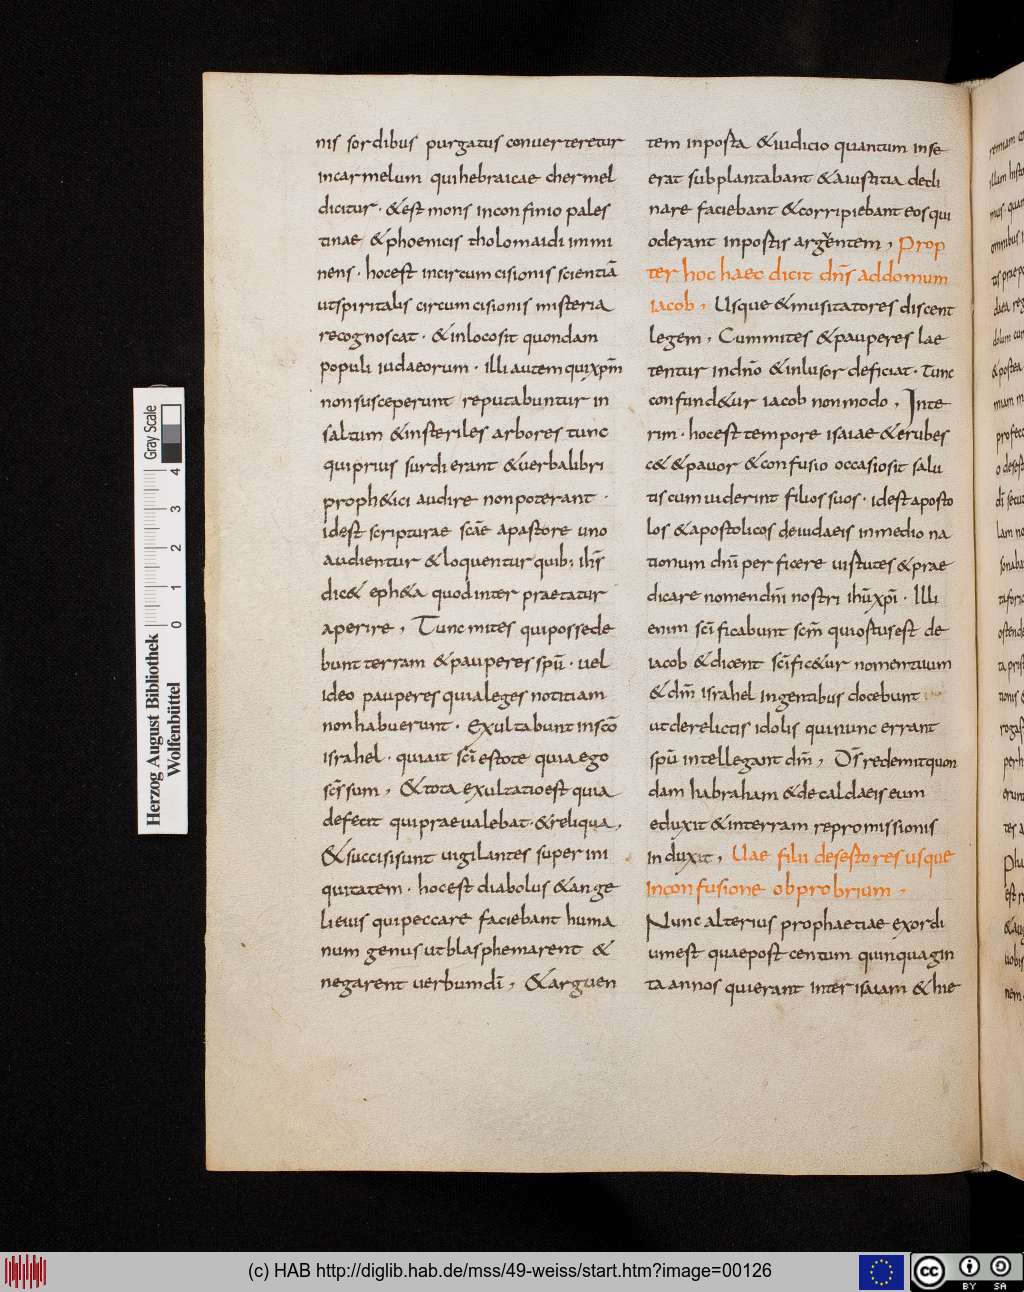 nis sordibus purgatus conuerteretur
incarmelum quihebraicae chermel
dicitur · &est mons inconfinio pales
tinae &phoenicis tholomaidi immi
nens · hocest incircumcisionis scientiā
utspiritalis circumcisionis misteria
recognoscat · &inlocosit quondam
populi iudaeorum · illi autem quixpm̄
nonsusceperunt reputabuntur in
saltum &insteriles arbores tunc
quiprius surdi erant &uerbalibri
proph&ici audire nonpoterant ·
idest scripturae scāe apastore uno
audientur &loquentur quib; ihs̄
dic& eph&a quodinter praetatur
aperire , Tunc mites quipossede
bunt terram &pauperes spū · uel
ideo pauperes quialeges notitiam
nonhabuerunt · exultabunt inscō
israhel · quiait scī estote quiaego
scs̄ sum , &tota exultatioest quia
defecit quipraeualebat · &reliqua ,
&succisisunt uigilantes super ini
quitatem · hocest diabolus &ange
li eius quipeccare faciebant huma
num genus utblasphemarent &
negarent uerbumdī , &arguen
tem inposta &iudicio quantum inse
erat subplantabant &aiustitia decli
nare faciebant &corripiebant eosqui
oderant inpostis argentem , Prop
ter hoc haec dicit dns̄ addomum
iacob , Usque &musitatores discent
legem , Cummites &pauperes lae
tentur indnō &inlusor deficiat · Tunc
confund&ur iacob nonmodo , Inte
rim · hocest tempore isaiae &erubes
c& &pauor &confusio occasiosit salu
tis cum uiderint filios suos · idest aposto
los &apostolicos deiudaeis inmedio na
tionum dnī perficere uirtutes &prae
dicare nomendnī nostri ihūxpī · Illi
enim scīficabunt scm̄ quiortusest de
iacob &dicent scīfic&ur nomentuum
&dm̄ israhel ingentibus docebunt
utderelictis idolis quinunc errant
spū intellegant dm̄ , Ds̄ redemitquon
dam habraham &decaldaeis eum
eduxit &interram repromissionis
induxit , Uae filii desertores usque
inconfusione obprobrium ,
Nunc alterius prophaetiae exordi
umest quaepost centum quinquagin
ta annos quierant inter isaiam &hie
Herzog August Bibliothek
Wolfenbüttel
Gray Scale
0 1 2 3 4
(c) HAB http://diglib.hab.de/mss/49-weiss/start.htm?image=00126
cc BY SA